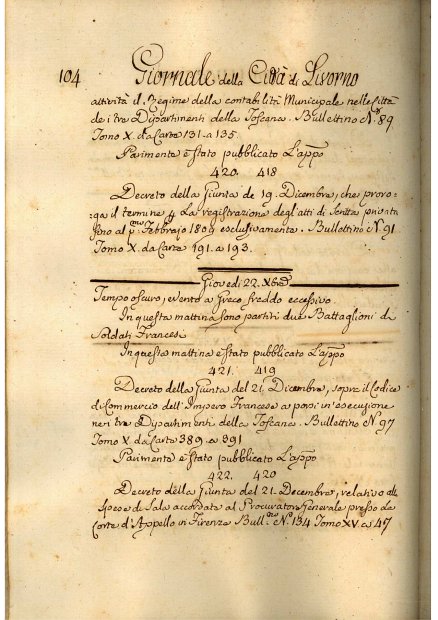 104 Giornale della Città di Livorno
attività il Regime della contabilità Municipale nelle Città
dei tre Dipartimenti della Toscana. Bullettino N.º 89
Tomo X. da Carte 131. a 135.
Parimente è stato pubblicato L'appo
420. 418
Decreto della Giunta de 19. Dicembre, che proro=
ga il termine p La registrazione degl'atti di Scritta privata
fino al pmo Febbrajo 1809 esclusivamente. Bullettino N. 91
Tomo X. da Carte 191. a 193.
Giovedì 22. Xbre
Tempo oscuro, e Vento a Greco freddo eccessivo.
In questa mattina sono partiti due Battaglioni di
Soldati Francesi
In questa mattina è stato pubblicato L'appo
421. 419
Decreto della Giunta del 21. Dicembre, sopra il Codice
di Commercio dell'Impero Francese a porsi in esecuzione
nei tre Dipartimenti della Toscana. Bullettino N. 97
Tomo X. da Carte 389. a 391
Parimente è stato pubblicato L'appo
422. 420
Decreto della Giunta del 21. Decembre, relativo alle
spese di Sala accordate al Procuratore Generale presso la
Corte d'Appello in Firenze Bull.no N.º 134 Tomo XV. a 47